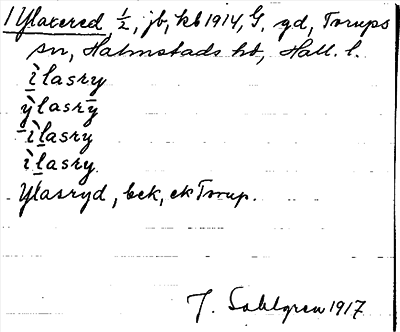 1 Ylakered ½, jb, kb 1914, G, gd, Torups
sn, Halmstads hd, Hall. l.
ìlasry
ỳlasrȳ
ìlasry
ìlasry.
Ylasryd, bek, ek Torup.
J. Sahlgren 1917